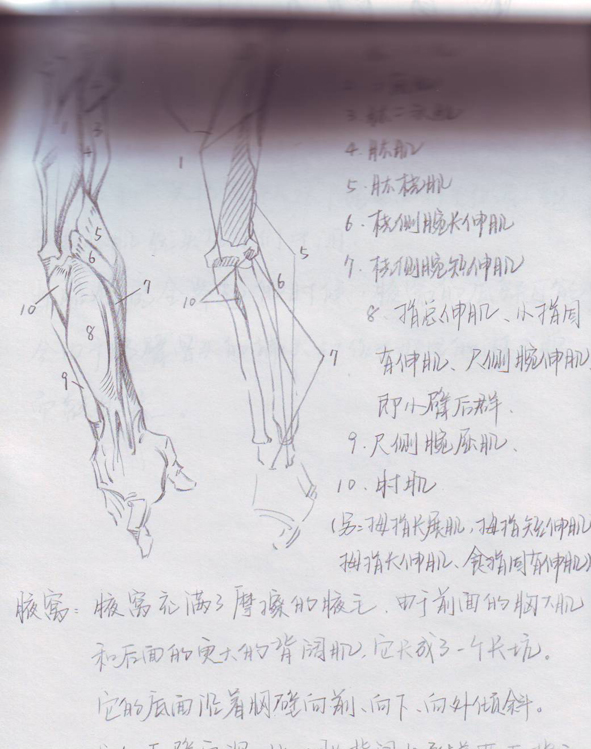 3. 肱二头肌
4. 肱肌
5. 肱桡肌
6. 桡侧腕长伸肌
7. 桡侧腕短伸肌
8. 指总伸肌、小指固
有伸肌、尺侧腕伸肌
即小臂后群.
9. 尺侧腕屈肌.
10. 肘肌
(另:拇指长展肌,拇指短伸肌
拇指长伸肌、食指固有伸肌)
腋窝: 腋窝充满了摩擦的腋毛.由于前面的胸大肌
和后面的更大的背阔肌,它长成了一个长坑。
它的底面沿着胸壁向前、向下、向外倾斜。
3
4
5
6
7
8
9
10
1
5
6
7
10